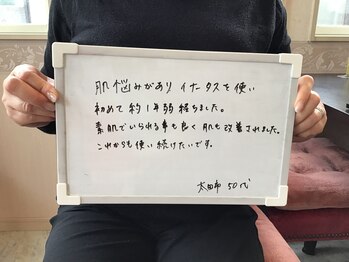 肌悩みがあり イナータスを使い
初めて約1年弱経ちました。
素肌でいられる事も良く 肌も改善されました。
これからも使い続けたいです。
太田市 50代